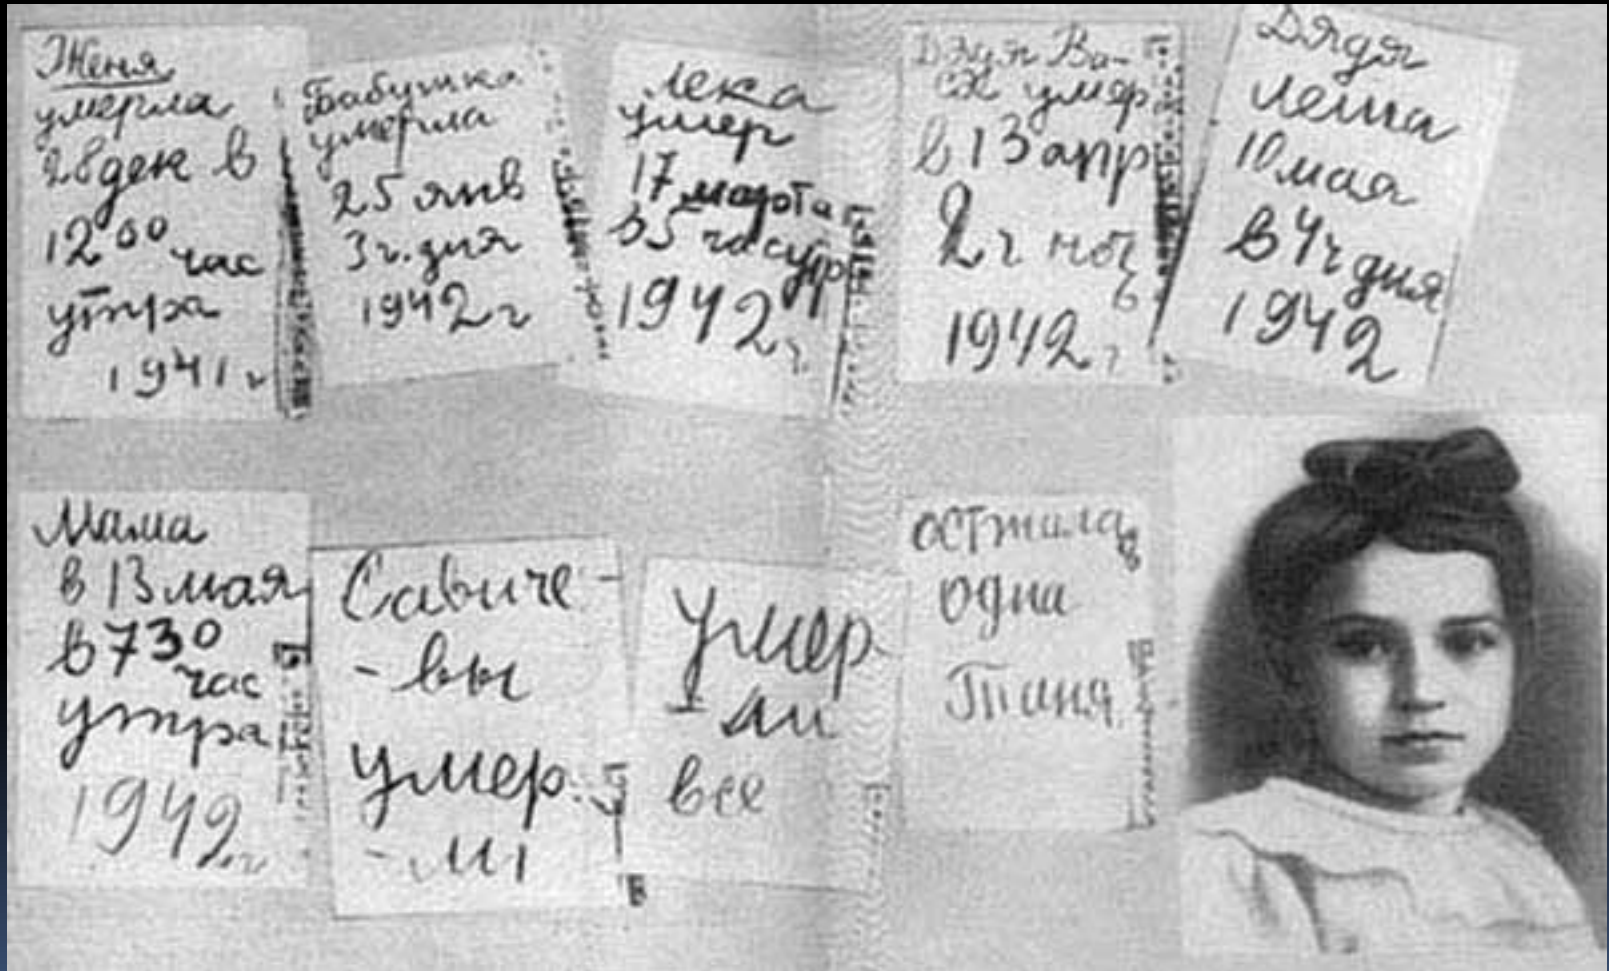 Женя
умерла
28 дек в
12 00 час
утра
1941 г
Бабушка
умерла
25 янв
3 ч. дня
1942 г
Лека
умер
17 марта
в 5 час утр
1942 г.
Дядя Ва-
ся умер
в 13 апр
2 ч ноч
1942 г
Дядя
Леша
10 мая
в 4 ч дня
1942
Мама
в 13 мая
в 7 30
час
утра
1942 г
Савиче-
- вы
умер
- ли
Умер
- ли
все
осталась
одна
Таня